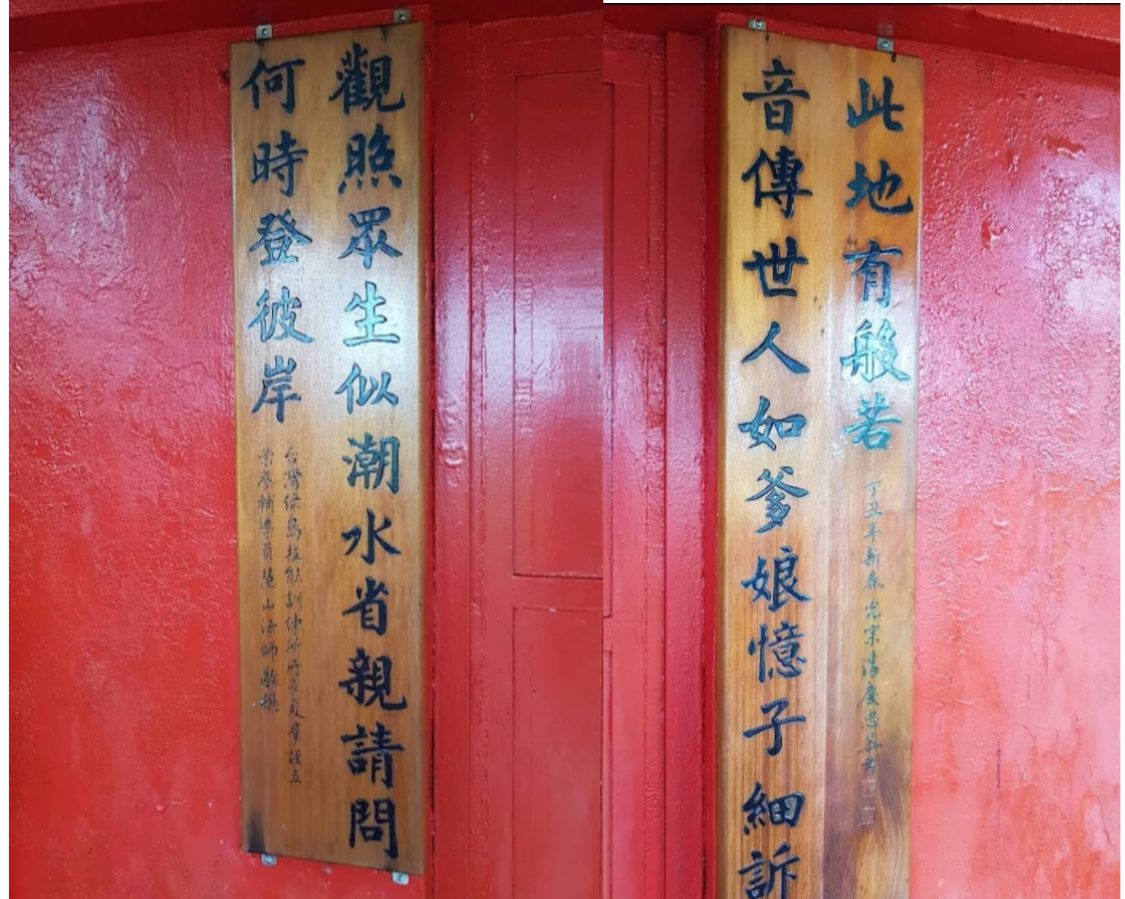 觀照眾生似潮水省親請問
何時登彼岸
台灣綠島技能訓練所所長夏謹立
榮譽輔導員慧山法師敬撰
音傳世人如爹娘憶子細訴
此地有般若
丁丑年新春光宗慶忠恭書